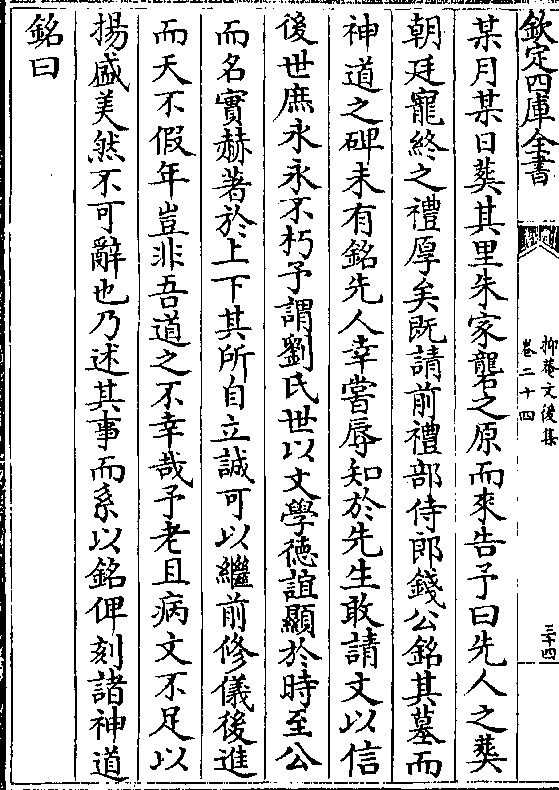 欽定四庫全書
抑菴文後集
卷二十四
三十四
某月某日葬其里朱家礱之原而來告予曰先人之葬
朝廷寵終之禮厚矣既請前禮部侍郎錢公銘其墓而
神道之碑未有銘先人幸嘗辱知於先生敢請文以信
後世庶永永不朽予謂劉氏世以文學德誼顯於時至公
而名實赫著於上下其所自立誠可以繼前修儀後進
而天不假年豈非吾道之不幸哉予老且病文不足以
揚盛美然不可辭也乃述其事而系以銘俾刻諸神道
銘曰